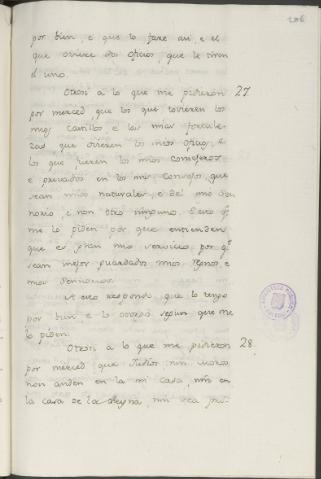 206
por bien, e que lo fare asi e el
que oviere dos oficios, que le tiren
el uno.
Otrosi a lo que me pidieron 27
por merced que los que tovieren los
mios castillos e las mias fortale-
zas que ovieren los mios ofiços, e
los que fueren los mios consejeros
e privados en los mis consejos, que
sean mios naturales, e del mio Se-
norio, e non otro ninguno. E esto q.e
me lo piden por que entienden
que es gran mio servicio, por q.e
sean mejor guardados mios regnos e
mios Señorios.
A esto respondo que lo tengo
por bien e lo otorgo segun que me
lo piden.
Otrosi a lo que me pidieron 28.
por merced que Judios nin moros
non anden en la mi casa, nin en
la casa de la Reyna, nin sea